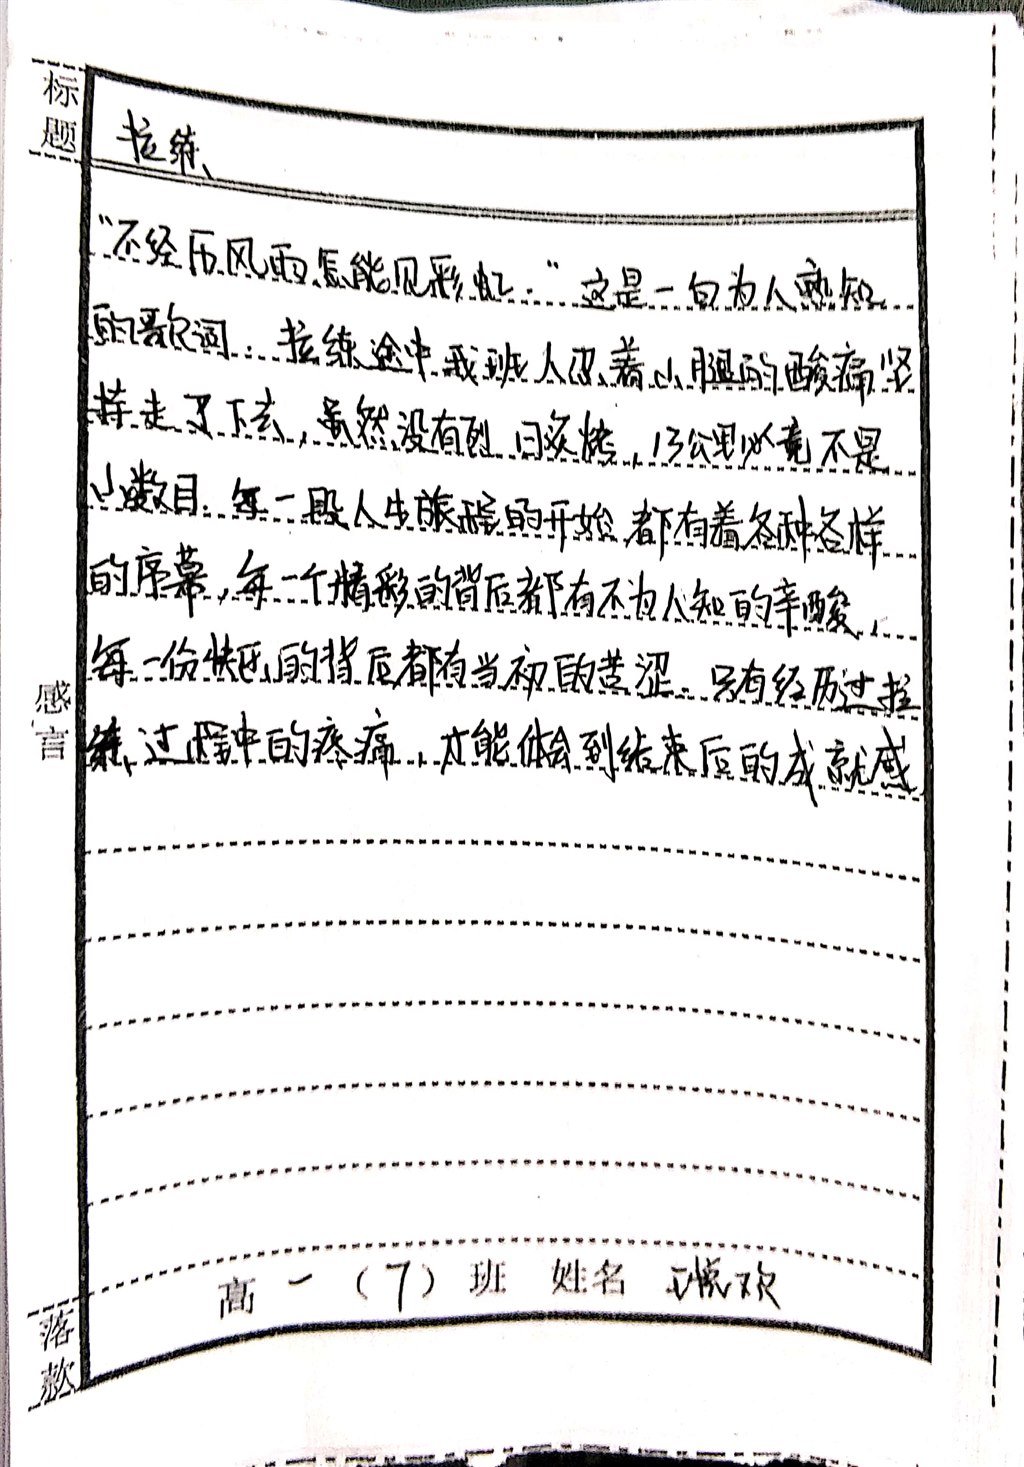 标题
拉练
“不经历风雨怎能见彩虹.”这是一句为人熟知
的歌词.拉练途中我班人忍着小腿的酸痛坚
持走了下去,虽然没有烈日炙烤,13公里必竟不是
小数目.每一段人生旅程的开始都有着各种各样
的序幕,每一个精彩的背后都有不为人知的辛酸,
每一份快乐的背后都有当初的苦涩.只有经历过拉
练过程中的疼痛,才能体会到结束后的成就感
感言
高一(7)班 姓名 王悦欢
落款